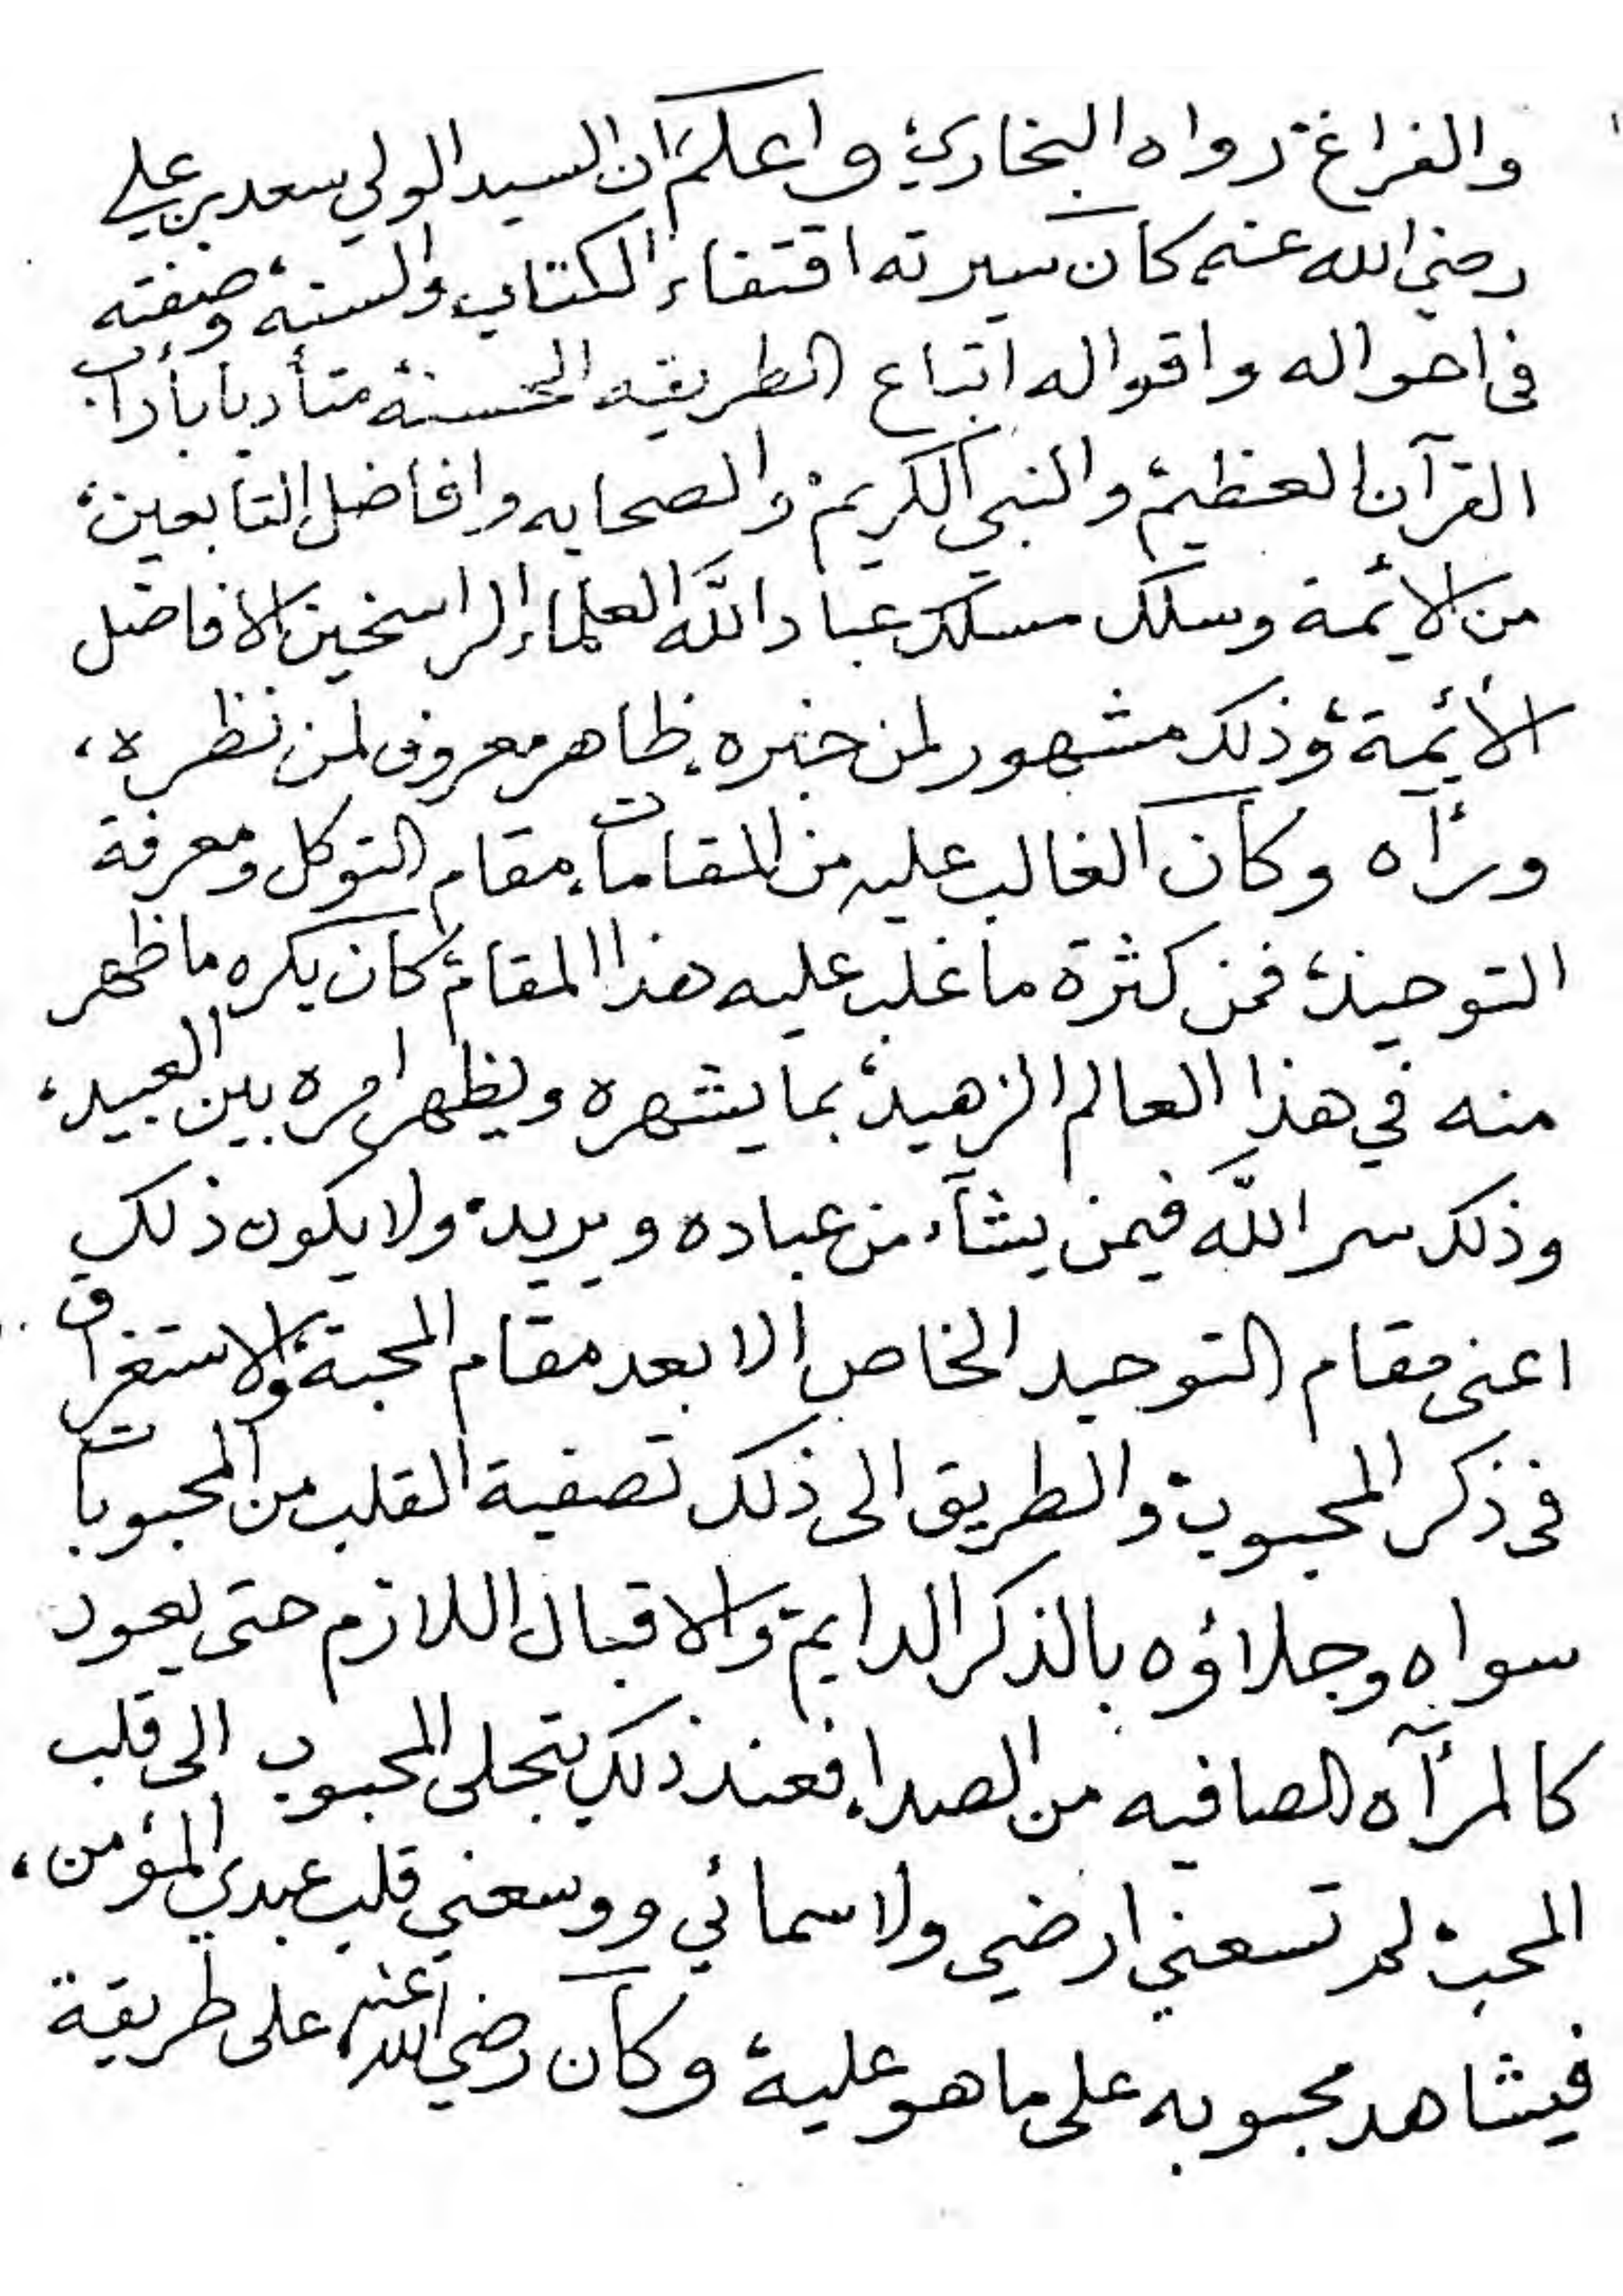 والفراغ، رواه البخاري، واعلم ان السيد الولي سعد بن علي
رضي الله عنه كان سيرته اقتفاء الكتاب والسنه، وصفته
فى احواله واقواله اتباع الطريقه الحسنة، متأدبا بأداب
القرآن العظيم، والنبي الكريم، والصحابه وافاضل التابعين،
من الائمة وسلك مسلك عباد الله العلماء الراسخين الافاضل
الأئمة، وذلك مشهور لمن خبره، ظاهر معروف لمن نظره،
ورأه وكان الغالب عليه من المقامات، مقام التوكل ومعرفة
التوحيد، فمن كثرة ما غلب عليه هذا المقام، كان يكره ما ظهر
منه في هذا العالم الزهيد، بما يشهره ويظهر امره بين العبيد،
وذلك سر الله فيمن يشآء من عباده ويريد، ولا يكون ذلك
اعنى مقام التوحيد الخاص الا بعد مقام المحبة، والاستغراق
فى ذكر المحبوب، والطريق الى ذلك تصفية القلب من المحبوبات
سواه وجلاؤه بالذكر الدايم، والاقبال اللازم حتى يعود
كالمرآه الصافيه من الصدا، فعند ذلك يتجلى المحبوب الى قلب
المحب، لم تسعني ارضي ولا سمائي ووسعني قلب عبدي المؤمن،
فيشاهد محبوبه على ما هو عليه، وكان رضي الله عنه، على طريقة